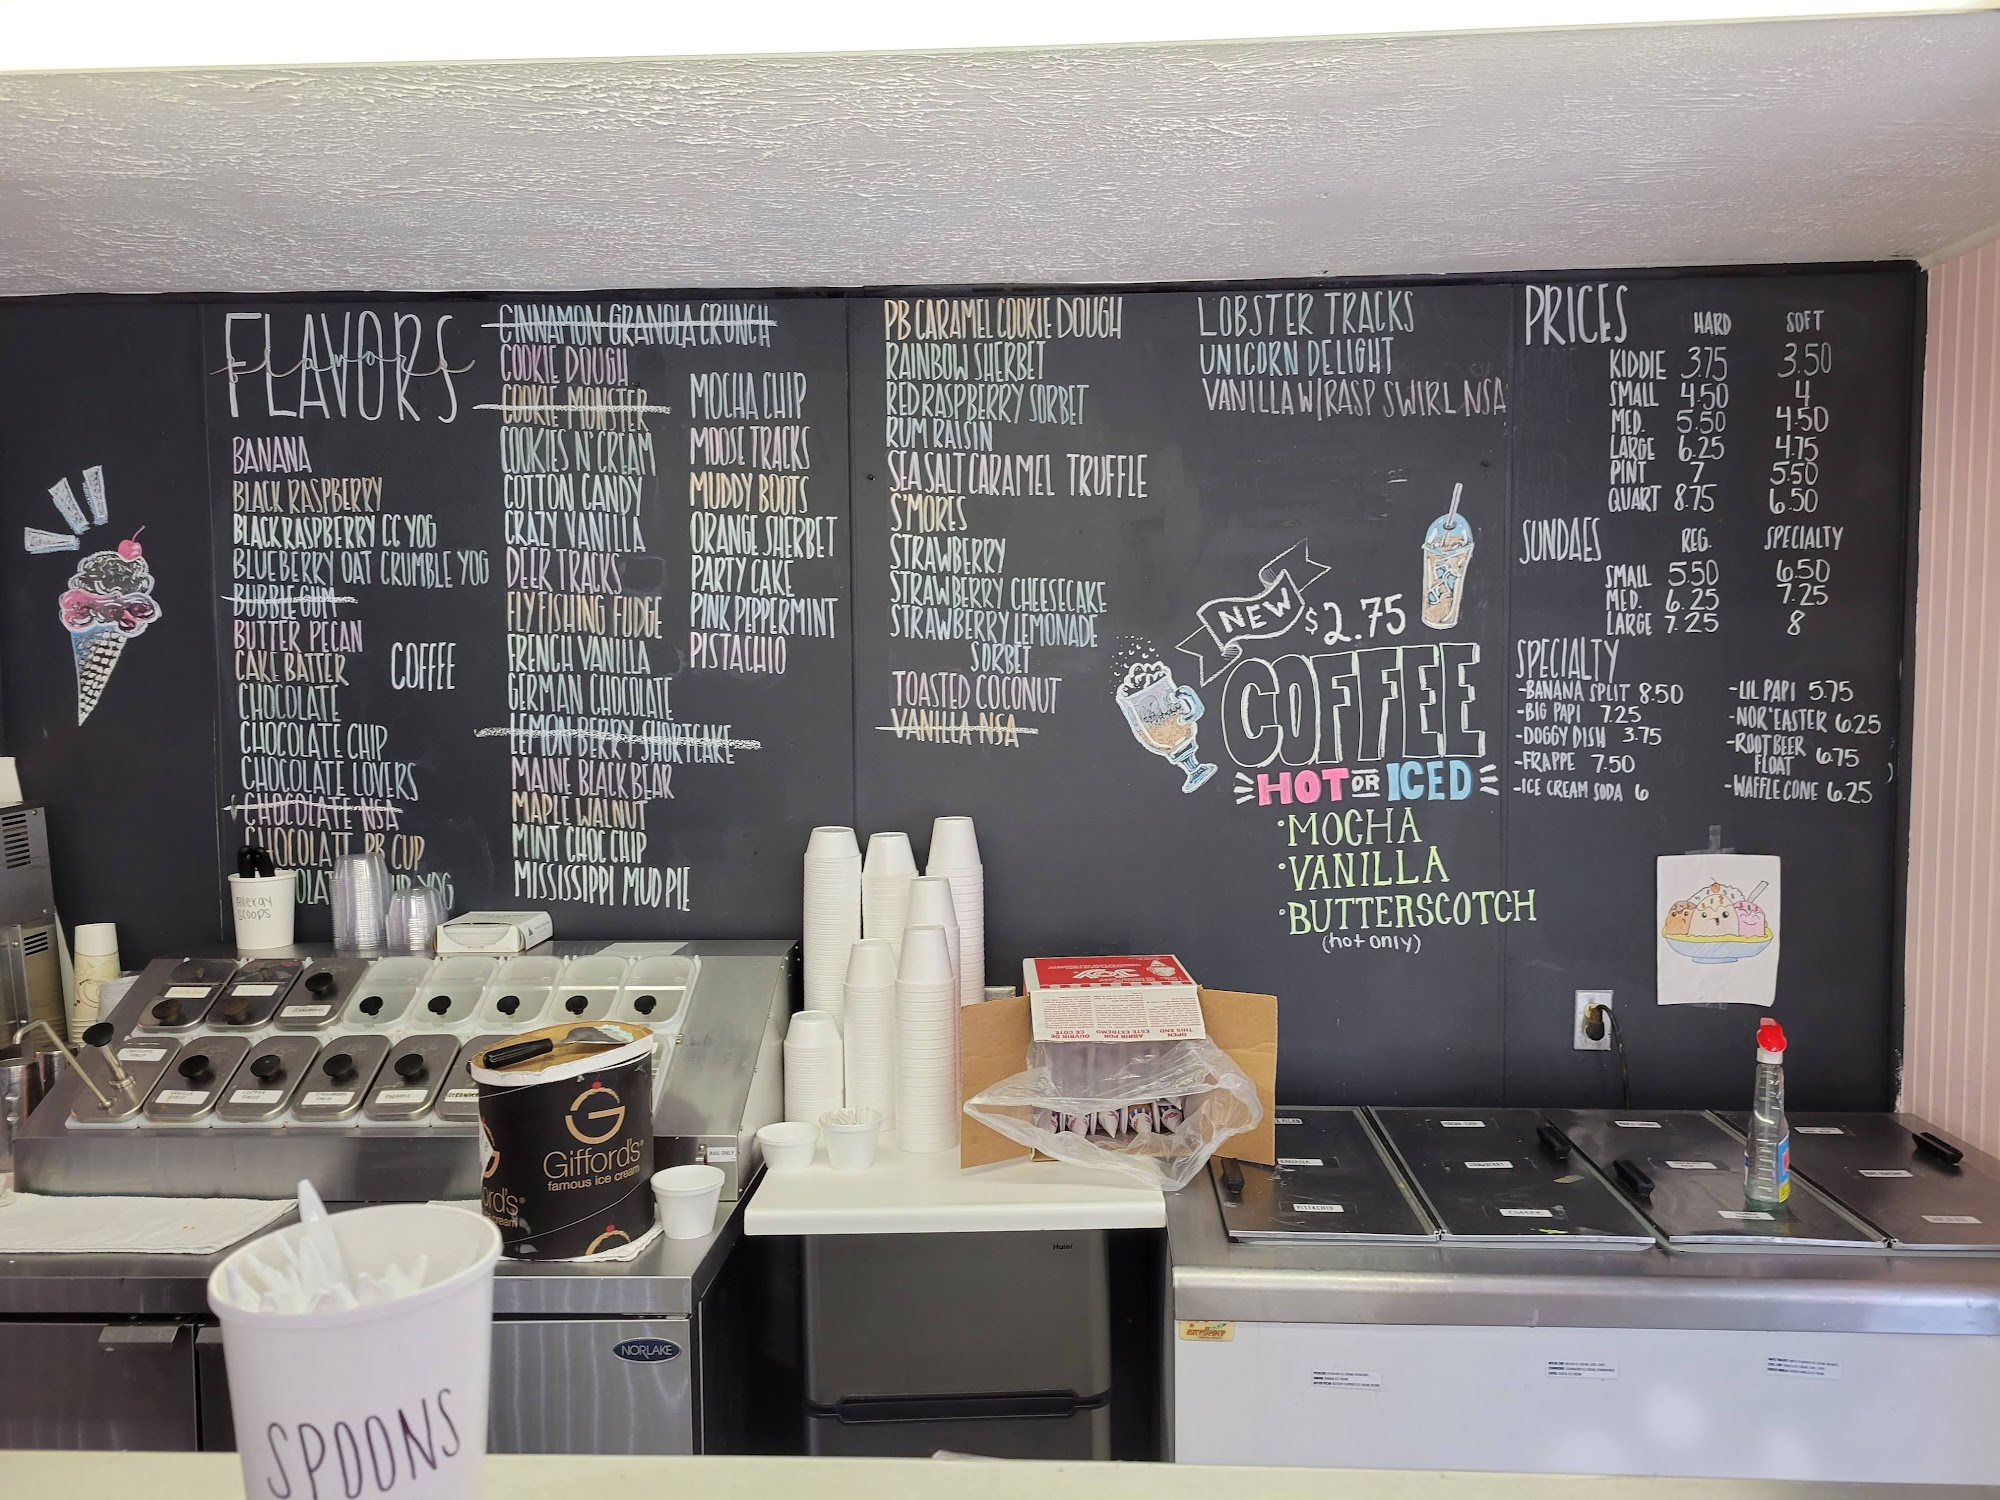 FLAVORS
flavors
BANANA
BLACK RASPBERRY
BLACK RASPBERRY CC YOG
BLUEBERRY OAT CRUMBLE YOG
BUBBLE GUM
BUTTER PECAN
CAKE BATTER
CHOCOLATE
CHOCOLATE CHIP
CHOCOLATE LOVERS
CHOCOLATE NSA
CHOCOLATE PB CUP
YOG
COFFEE
CINNAMON GRANOLA CRUNCH
COOKIE DOUGH
COOKIE MONSTER
COOKIES N' CREAM
COTTON CANDY
CRAZY VANILLA
DEER TRACKS
FLY FISHING FUDGE
FRENCH VANILLA
GERMAN CHOCOLATE
LEMON BERRY SHORTCAKE
MAINE BLACK BEAR
MAPLE WALNUT
MINT CHOC CHIP
MISSISSIPPI MUD PIE
MOCHA CHIP
MOOSE TRACKS
MUDDY BOOTS
ORANGE SHERBET
PARTY CAKE
PINK PEPPERMINT
PISTACHIO
PB CARAMEL COOKIE DOUGH
RAINBOW SHERBET
RED RASPBERRY SORBET
RUM RAISIN
SEA SALT CARAMEL TRUFFLE
S'MORES
STRAWBERRY
STRAWBERRY CHEESECAKE
STRAWBERRY LEMONADE
SORBET
TOASTED COCONUT
VANILLA NSA
LOBSTER TRACKS
UNICORN DELIGHT
VANILLA W/RASP SWIRL NSA
NEW $2.75
COFFEE
HOT OR ICED
•MOCHA
•VANILLA
•BUTTERSCOTCH
(hot only)
PRICES HARD SOFT
KIDDIE 3.75 3.50
SMALL 4.50 4
MED. 5.50 4.50
LARGE 6.25 4.75
PINT 7 5.50
QUART 8.75 6.50
SUNDAES REG. SPECIALTY
SMALL 5.50 6.50
MED. 6.25 7.25
LARGE 7.25 8
SPECIALTY
-BANANA SPLIT 8.50
-BIG PAPI 7.25
-DOGGY DISH 3.75
-FRAPPE 7.50
-ICE CREAM SODA 6
-LIL PAPI 5.75
-NOR'EASTER 6.25
-ROOT BEER FLOAT 6.75
-WAFFLE CONE 6.25
Allergy
Scoops
JOY
OPEN
THIS END
ABRIR POR
ESTE EXTREMO
OUVRIR DE
CE CÔTÉ
G
Gifford's
famous ice cream
BANANA
PISTACHIO
COFFEE
Haier
NORLAKE
excellence
SPOONS